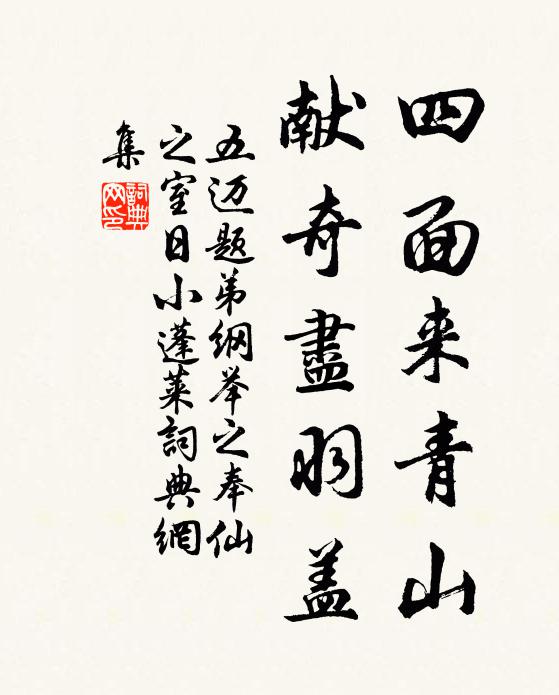 四面来青山
献奇盡羽盖
五迈题弟纲举之奉仙
之室日小蓬莱詞典網
集
詞典网印